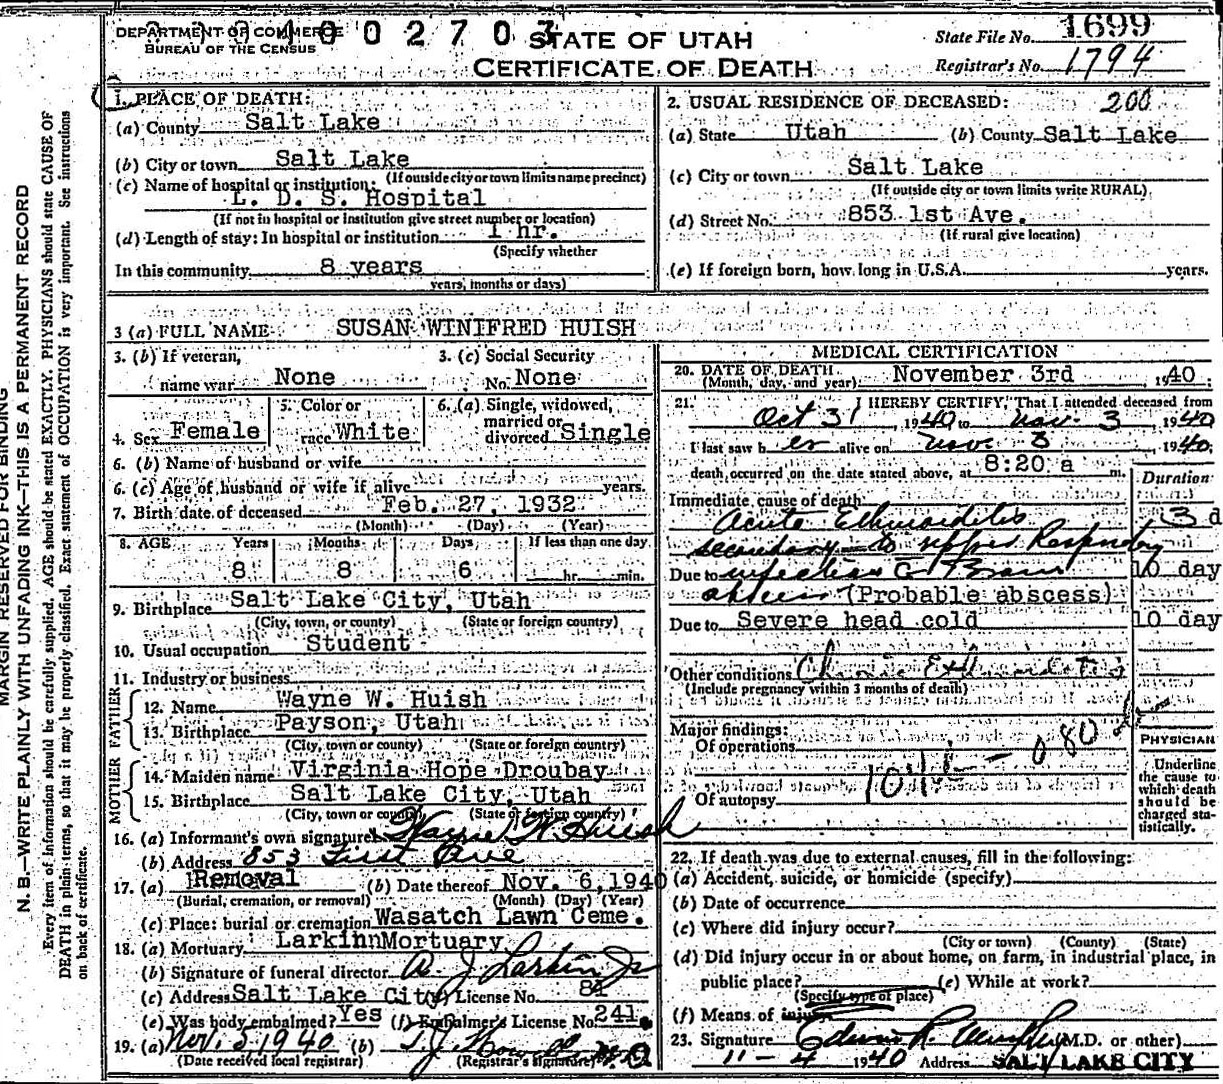 DEPARTMENT OF COMMERCE
BUREAU OF THE CENSUS
STATE OF UTAH
CERTIFICATE OF DEATH
State File No. 1699
Registrar's No. 1794
1. PLACE OF DEATH:
(a) County Salt Lake
(b) City or town Salt Lake
(If outside city or town limits name precinct)
(c) Name of hospital or institution:
L. D. S. Hospital
(If not in hospital or institution give street number or location)
(d) Length of stay: In hospital or institution 1 hr.
(Specify whether
In this community 8 years
years, months or days)
2. USUAL RESIDENCE OF DECEASED: 200
(a) State Utah (b) County Salt Lake
(c) City or town Salt Lake
(If outside city or town limits write RURAL)
(d) Street No. 853 1st Ave.
(If rural give location)
(e) If foreign born, how long in U.S.A. years.
3 (a) FULL NAME SUSAN WINIFRED HUISH
3. (b) If veteran,
name war None
3. (c) Social Security
No. None
4. Sex Female
5. Color or
race White
6. (a) Single, widowed,
married or
divorced Single
6. (b) Name of husband or wife
6. (c) Age of husband or wife if alive years.
7. Birth date of deceased Feb. 27, 1932
(Month) (Day) (Year)
8. AGE Years Months Days If less than one day
8 8 6 hr. min.
9. Birthplace Salt Lake City, Utah
(City, town, or county) (State or foreign country)
10. Usual occupation Student
11. Industry or business
FATHER
12. Name Wayne W. Huish
13. Birthplace Payson, Utah
(City, town or county) (State or foreign country)
MOTHER
14. Maiden name Virginia Hope Droubay
15. Birthplace Salt Lake City, Utah
(City, town or county) (State or foreign country)
16. (a) Informant's own signature Wayne W. Huish
(b) Address 853 First Ave
17. (a) Removal (b) Date thereof Nov. 6, 1940
(Burial, cremation, or removal) (Month) (Day) (Year)
(c) Place: burial or cremation Wasatch Lawn Ceme.
18. (a) Mortuary LarkinnMortuary
(b) Signature of funeral director A J Larkin Jr
(c) Address Salt Lake City License No. 81
(e) Was body embalmed? Yes (f) Embalmer's License No. 241.
19. (a) Nov. 5 1940 (b)
(Date received local registrar) (Registrar's signature)
MEDICAL CERTIFICATION
20. DATE OF DEATH
(Month, day, and year) November 3rd, 1940.
21. I HEREBY CERTIFY, That I attended deceased from
Oct 31, 1940 to Nov. 3, 1940
I last saw h er alive on Nov. 3 1940,
death occurred on the date stated above, at 8:20 a m.
Duration
Immediate cause of death
Acute Ethmoiditis 3 d
secondary to upper Respiratory
Due to infection & Brain 10 day
abscess (Probable abscess)
Due to Severe head cold 10 day
Other conditions Chronic Ethmoiditis
(Include pregnancy within 3 months of death)
Major findings:
Of operations
Of autopsy
PHYSICIAN
Underline
the cause to
which death
should be
charged sta-
tistically.
22. If death was due to external causes, fill in the following:
(a) Accident, suicide, or homicide (specify)
(b) Date of occurrence
(c) Where did injury occur?
(City or town) (County) (State)
(d) Did injury occur in or about home, on farm, in industrial place, in
public place? (e) While at work?
(Specify type of place)
(f) Means of injury
23. Signature (M.D. or other)
11-4 1940 Address SALT LAKE CITY
MARGIN RESERVED FOR BINDING
N. B.—WRITE PLAINLY WITH UNFADING INK—THIS IS A PERMANENT RECORD
Every item of information should be carefully supplied. AGE should be stated EXACTLY. PHYSICIANS should state CAUSE OF
DEATH in plain terms, so that it may be properly classified. Exact statement of OCCUPATION is very important. See instructions
on back of certificate.